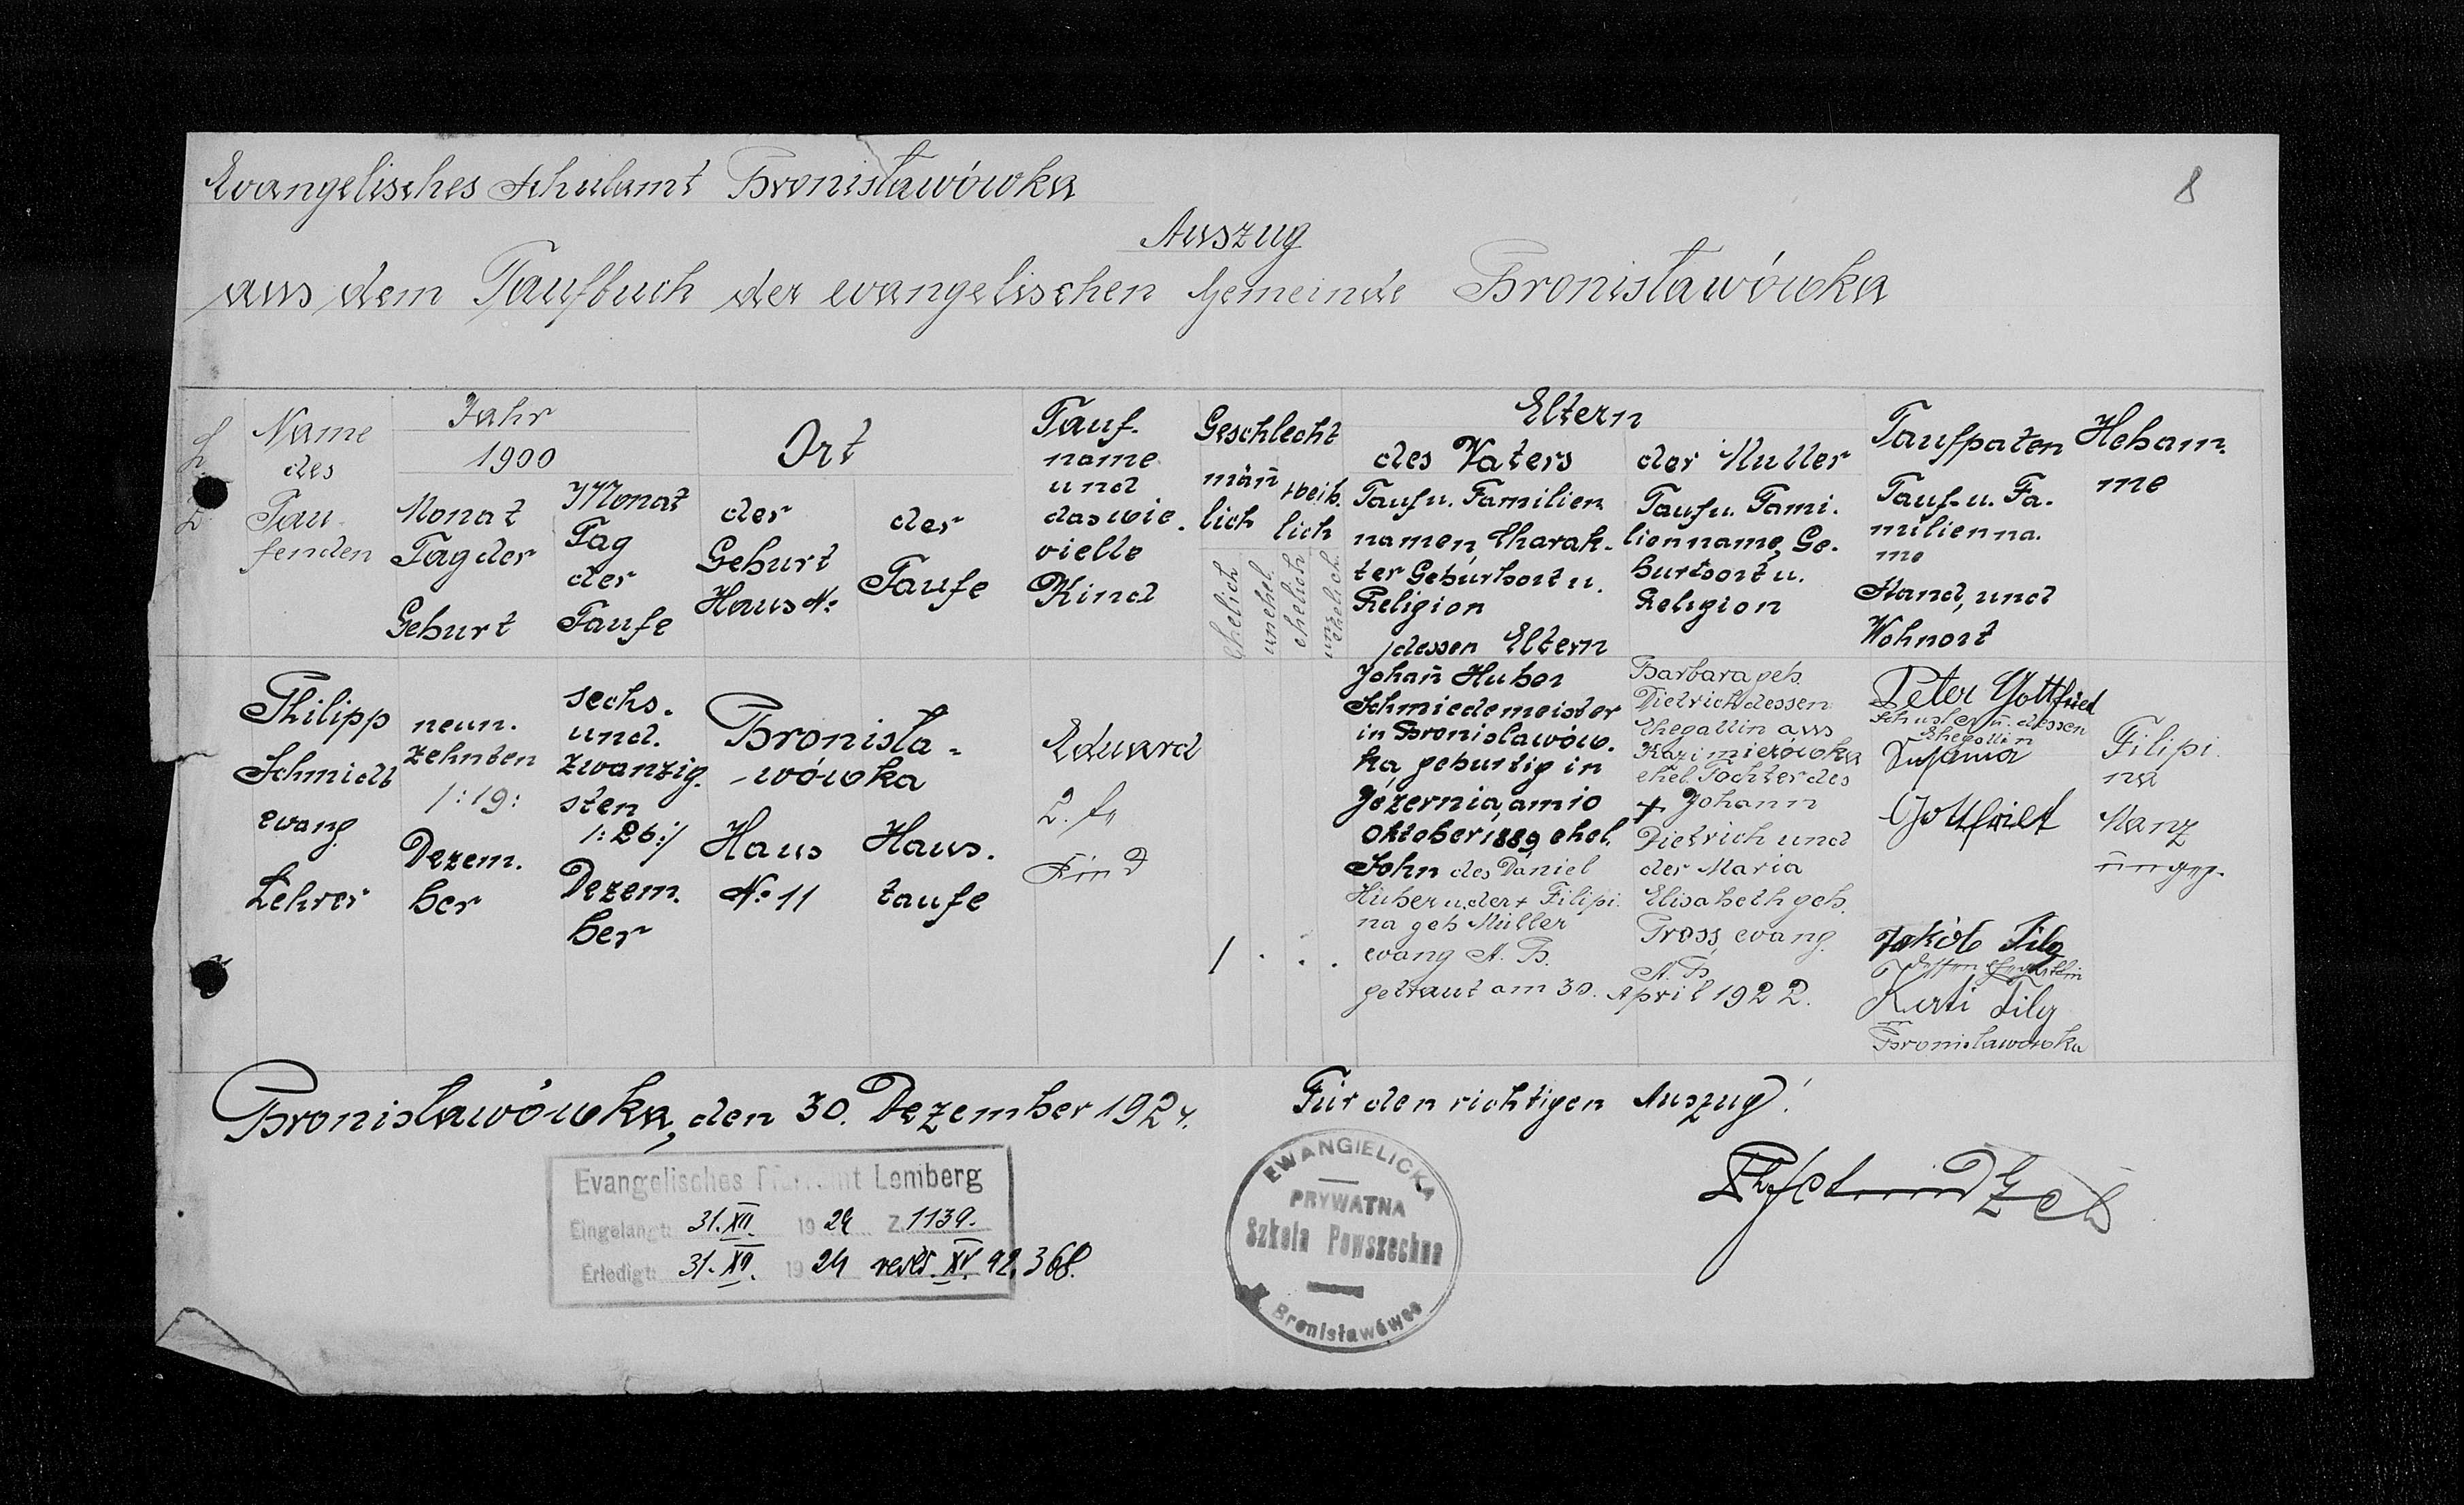 8
Evangelisches Schulamt Bronisławówka
Auszug
aus dem Taufbuch der evangelischen Gemeinde Bronisławówka
Name
des
Tau-
fenden
Jahr
1900
Monat
Tag der
Geburt
Monat
Tag
der
Taufe
Ort
der
Geburt
Haus №
der
Taufe
Tauf-
name
und
das wie-
vielte
Kind
Geschlecht
män̄
lich
weib.
lich
ehelich
unehel.
ehelich
unehelich.
Eltern
des Vaters
Tauf u. Familien
namen, Charak-
ter Geburtsort u.
Religion
dessen Eltern
der Mutter
Tauf u. Fami.
lienname, Ge-
burtsort u.
Religion
Taufpaten
Tauf- u. Fa-
milienna-
me
Stand, und
Wohnort
Hebam-
me
Philipp
Schmidt
evang.
Lehrer
neun-
zehnten
/:19:
Dezem-
ber
sechs-
und-
zwanzig-
sten
/:26:/
Dezem-
ber
Bronisła-
-wówka
Haus
№ 11
Haus-
taufe
Eduard
2.
Kind
/ . . .
Johan̄ Huber
Schmiedemeister
in Bronislawów-
ka geburtig in
Jezernia, am 10
Oktober 1889, ehel.
Sohn des Daniel
Huber u. der + Filipi-
na geb Müller
evang A. B.
getraut am 30. April 1922.
Barbara geb.
Dietrich dessen
Ehegattin aus
Kazimierowka
ehel. Tochter des
+ Johann
Dietrich und
der Maria
Elisabeth geb.
Gross, evang.
A. B.
Peter Gottfried
Schuster u. dessen
Ehegattin
Susanna
Gottfried
Jakób Filg
dessen Ehegattin
Kati Filg
Bronislawowka
Filipi-
na
Manz
Bronisławówka, den 30. Dezember 1924.
Für den richtigen Auszug!
Ph. Schmidt
Evangelisches Pfarramt Lemberg
Eingelangt: 31. XII. 1924 Z. 1139.
Erledigt: 31. XII. 1924 XV. 92. 368.
EWANGIELICKA
PRYWATNA
Szkoła Powszechna
Bronisławówce